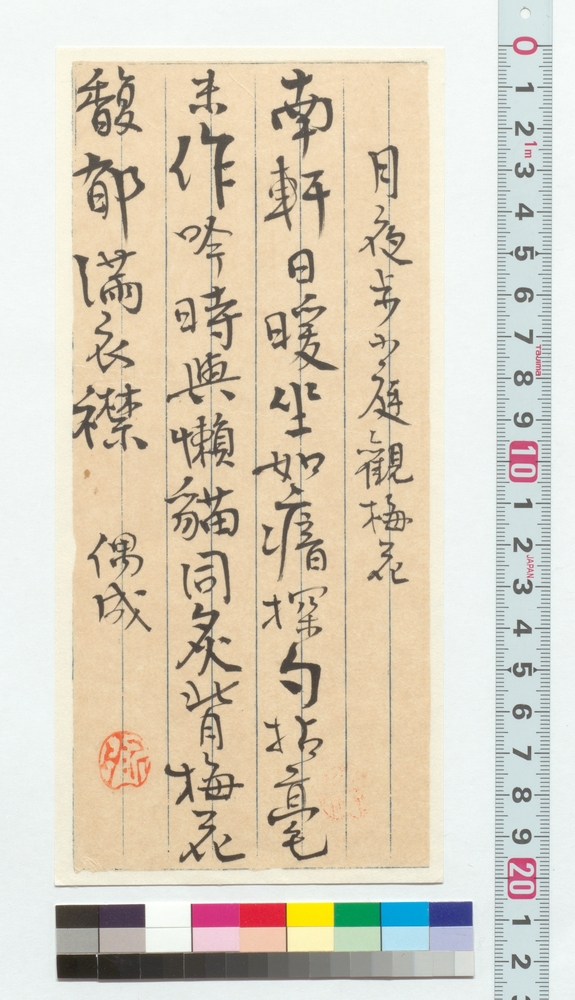 月夜步小庭觀梅花
南軒日暖坐如瘖探勺拈毫
未作吟時與懶貓同炙背梅花
馥郁滿衣襟
偶成
0
1
2
1m
3
4
5
6
7
Tajima
8
9
10
1
2
JAPAN
3
4
5
6
7
8
9
20
1
2